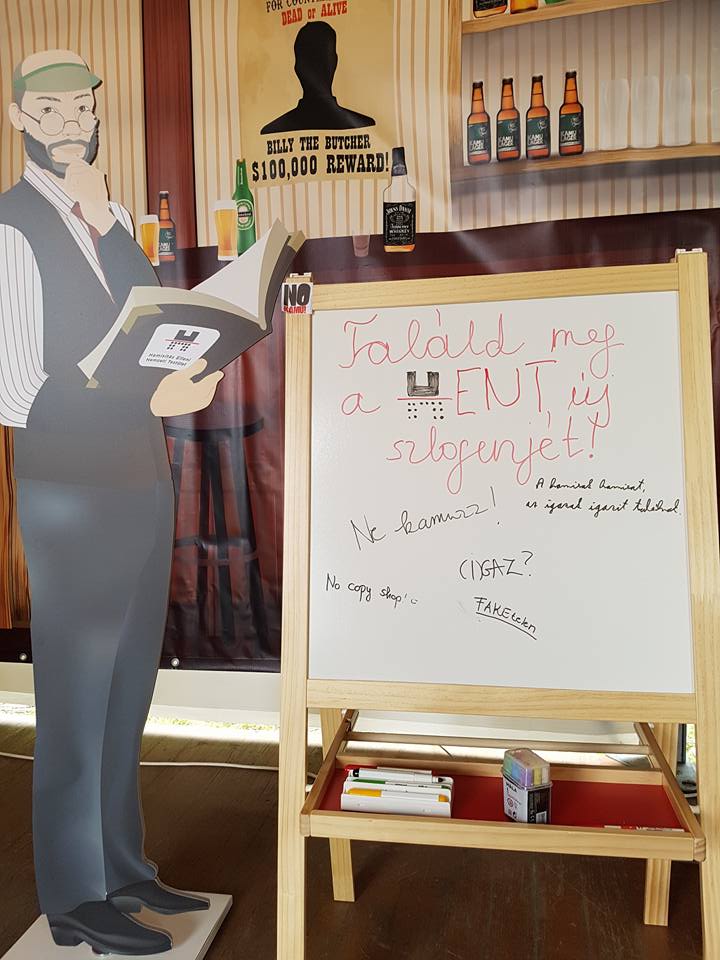 FOR COUNT
DEAD or ALIVE
BILLY THE BUTCHER
$100,000 REWARD!
KAMU
LAGER
KAMU
LAGER
KAMU
LAGER
KAMU
LAGER
KAMU
NO
KAMU!
Hamisítás Elleni
Nemzeti Testület
Találd meg
a HENT új
szlogenjét!
A hamisat hamisat,
az igazat igazit
Ne kamuzz!
(I)GAZ?
No copy shop!
FAKEtelen